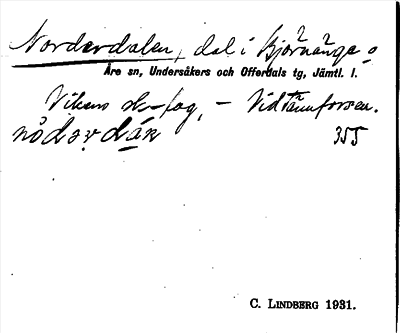 Norderdalen, dal i Björnänge
Åre sn, Undersåkers och Offerdals tg, Jämtl. l.
Vikens sk-lag, - Vid Tännforsen.
355
C. LINDBERG 1931.